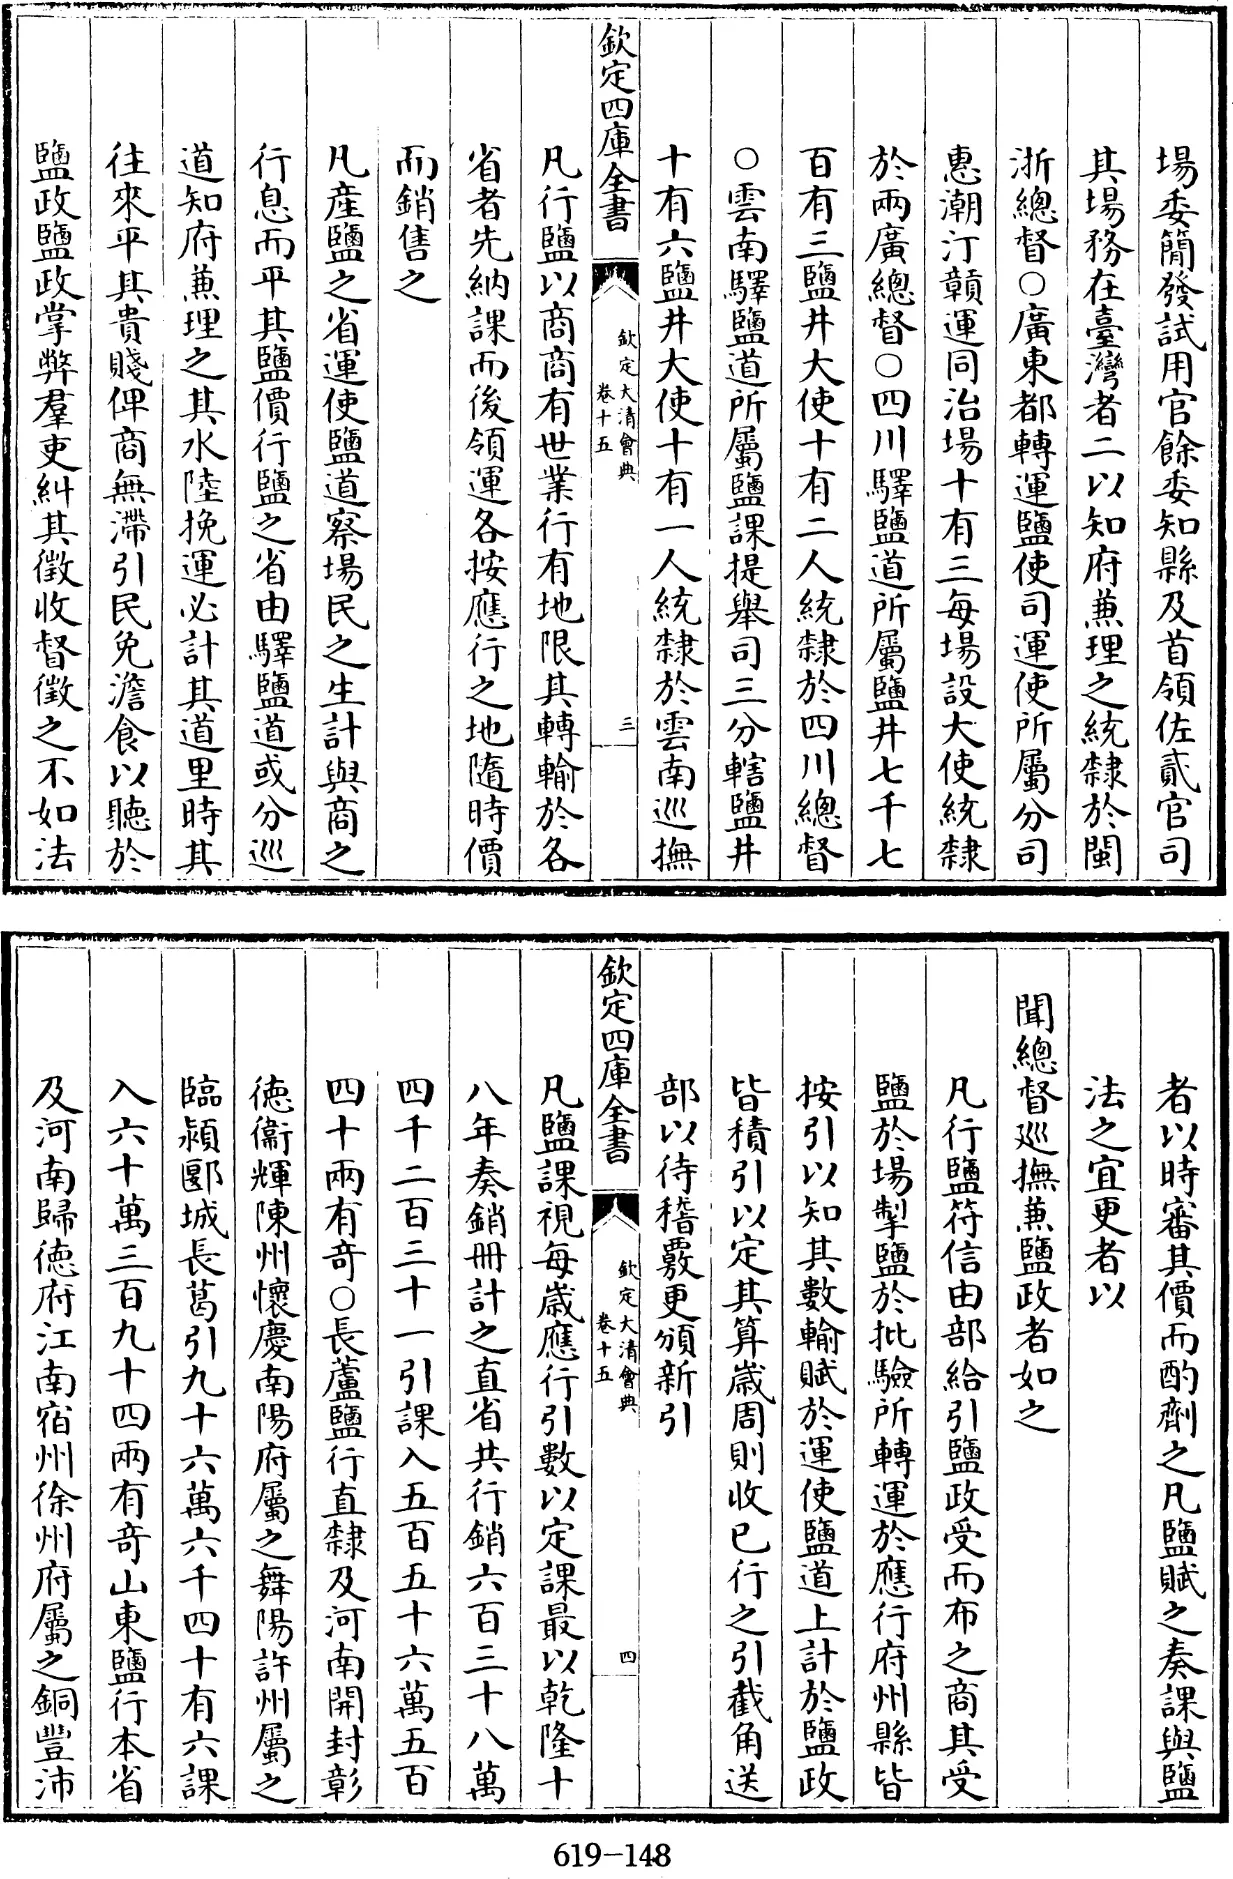 場委簡發試用官餘委知縣及首領佐貳官司
其場務在臺灣者二以知府兼理之統隷於閩
浙總督○廣東都轉運鹽使司運使所屬分司
惠潮汀贑運同治場十有三每場設大使統隷
於兩廣總督○四川驛鹽道所屬鹽井七千七
百有三鹽井大使十有二人統隷於四川總督
○雲南驛鹽道所屬鹽課提舉司三分轄鹽井
十有六鹽井大使十有一人統隷於雲南巡撫
欽定四庫全書
欽定大清會典
卷十五
三
凡行鹽以商商有世業行有地限其轉輸於各
省者先納課而後領運各按應行之地隨時價
而銷售之
凡產鹽之省運使鹽道察場民之生計與商之
行息而平其鹽價行鹽之省由驛鹽道或分巡
道知府兼理之其水陸挽運必計其道里時其
往來平其貴賤俾商無滯引民免澹食以聽於
鹽政鹽政掌弊羣吏糾其徵收督徵之不如法
者以時審其價而酌劑之凡鹽賦之奏課與鹽
法之宜更者以
聞總督巡撫兼鹽政者如之
凡行鹽符信由部給引鹽政受而布之商其受
鹽於場掣鹽於批驗所轉運於應行府州縣皆
按引以知其數輸賦於運使鹽道上計於鹽政
皆積引以定其算歲周則收已行之引截角送
部以待稽覈更頒新引
欽定四庫全書
欽定大清會典
卷十五
四
凡鹽課視每歲應行引數以定課最以乾隆十
八年奏銷冊計之直省共行銷六百三十八萬
四千二百三十一引課入五百五十六萬五百
四十兩有奇○長蘆鹽行直隷及河南開封彰
德衞輝陳州懷慶南陽府屬之舞陽許州屬之
臨潁郾城長葛引九十六萬六千四十有六課
入六十萬三百九十四兩有奇山東鹽行本省
及河南歸德府江南宿州徐州府屬之銅豐沛
619-148